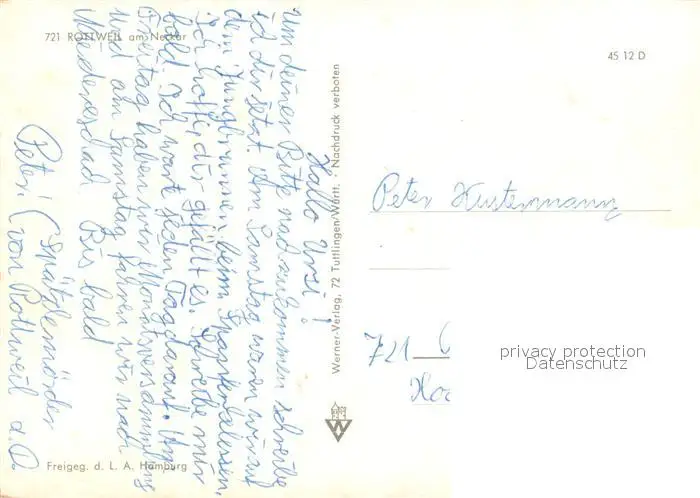 721 ROTTWEIL am Neckar
45 12 D
Hallo Ursi!
Um deiner Bitte nachzukommen schreibe
ich dir jetzt. Am Samstag waren wir auf
dem Jungbrunnen beim
Ich hoffe dir gefällt es. Schreibe mir
bald. Ich warte jeden Tag darauf. Am
Freitag haben wir Monatsversammlung
und am Samstag fahren wir nach
Bis bald
Peter! (Spätzlemörder
von Rottweil a.D.
Freigeg. d. L. A. Hamburg
Werner-Verlag, 72 Tuttlingen/Württ. · Nachdruck verboten
Peter Hustermann
721
privacy protection
Datenschutz